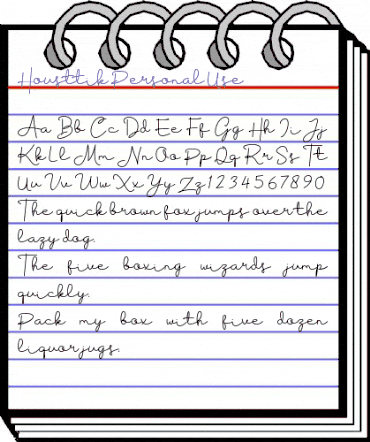 Housttik Personal Use
Aa Bb Cc Dd Ee Ff Gg Hh Ii Jj
Kk Ll Mm Nn Oo Pp Qq Rr Ss Tt
Uu Vv Ww Xx Yy Zz 1 2 3 4 5 6 7 8 9 0
The quick brown fox jumps over the
lazy dog.
The five boxing wizards jump
quickly.
Pack my box with five dozen
liquor jugs.